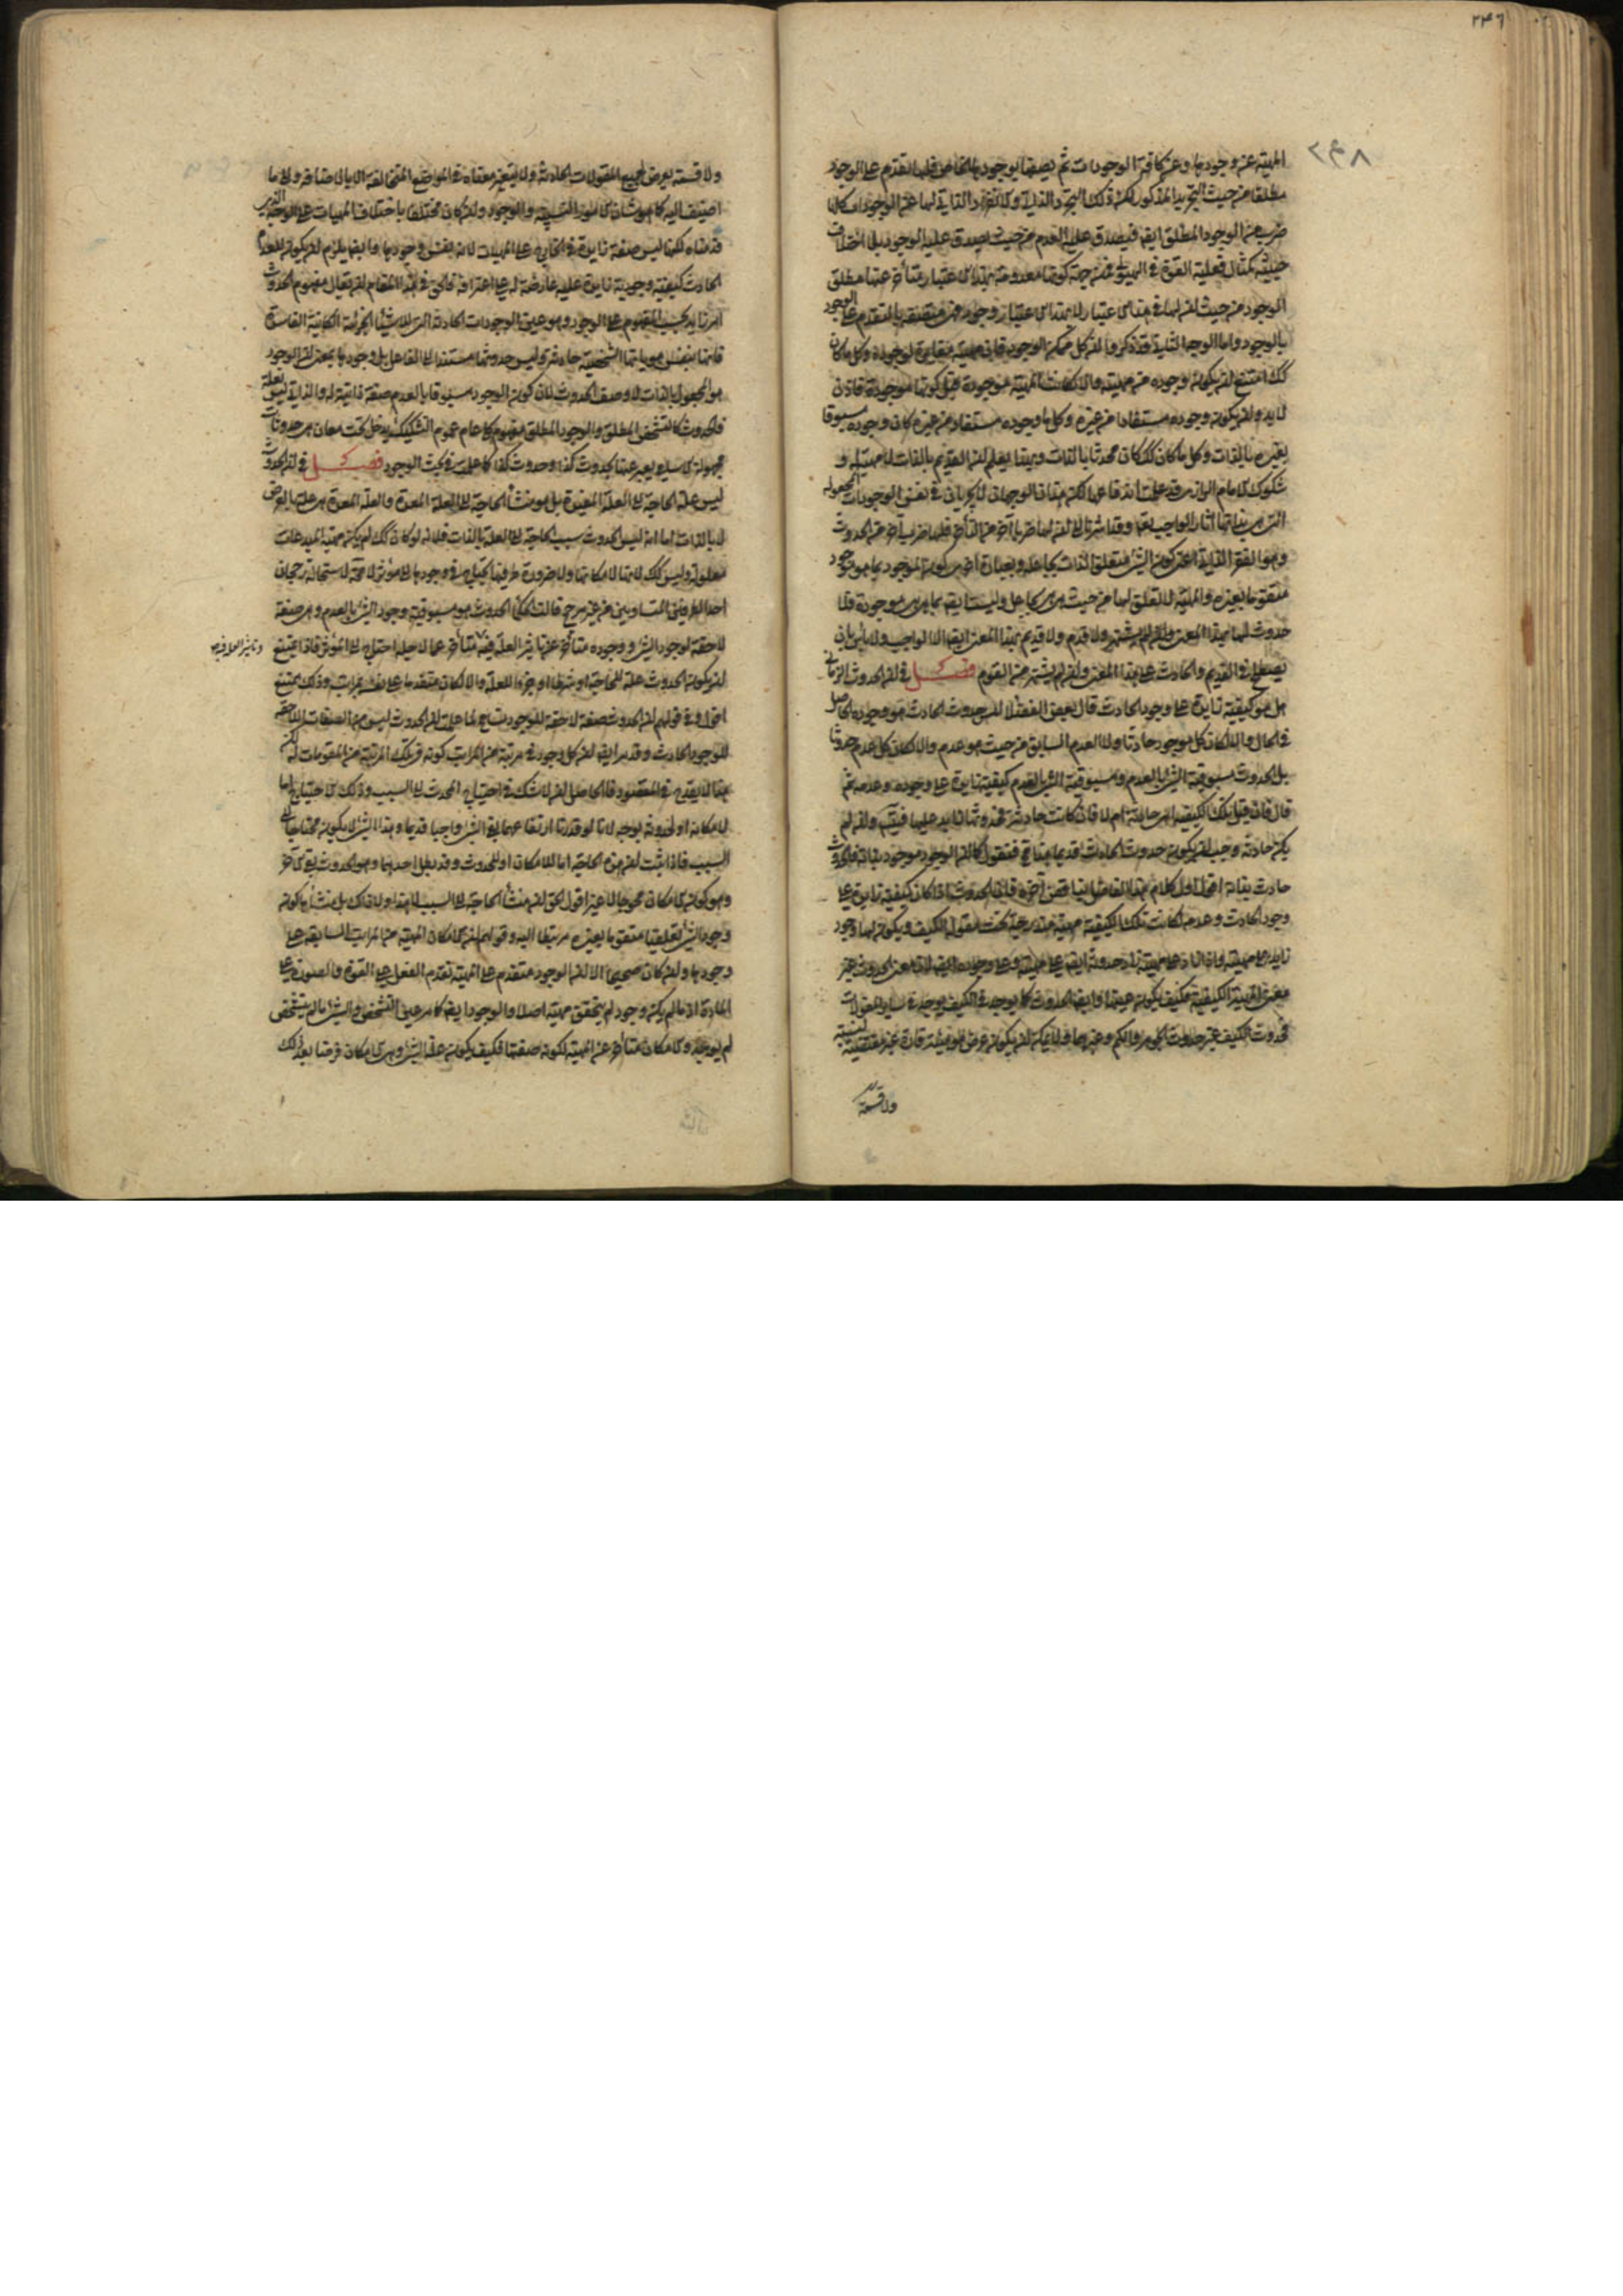 ٢٤٦
٢٤٨
المهية عن وجودها وعن كافة الوجودات ثم يصفها بوجودها الخاص فلها تقدم على الوجود
مطلقا من حيث التجريد المذكور لكن ذلك التجرد
ضرب من الوجود المطلق ايضا فيصدق عليه العدم من حيث يصدق عليه الوجود بلا اختلاف
حيثية كمثال فعلية القوة في الهيولى فمن جهة كونها معدومة بهذا الاعتبار متأخر عنها مطلق
الوجود من حيث ان لها في هذا الاعتبار لا بهذا الاعتبار وجود فهى متصفة بالتقدم على الوجود
بالوجود واما الوجه الثاني فقد ذكروا ان كل ممكن الوجود فان مهيته مغايرة لوجوده وكل ما كان
كك امتنع ان يكون وجوده من مهيته والا لكانت المهية موجودة قبل كونها موجودة فاذن
لا بد وان يكون وجوده مستفادا من غيره وكل ما وجوده مستفاد من غيره كان وجوده مسبوقا
بغيره بالذات وكل ما كان كك كان محدثا بالذات وبهذا يعلم ان القديم بالذات لا مهية له و
شكوك الامام الرازي قد علمت اندفاعها لكن هذان الوجهان لا يجريان في نفس الوجودات المجعولة
التي هي بذاتها آثار الواجب تعالى وقد اشرنا الى ان لها ضربا آخر من التأخر فلها ضرب آخر من الحدوث
وهو الفقر الذاتي اعنى كون الشئ متعلق الذات بجاعله وبعبارة اخرى كون الموجود بما هو موجود
متقوما بغيره والمهية لا تعلق لها من حيث هي هي بجاعل وليست ايضا بما هي هي موجودة فلا
حدوث لها بهذا المعنى ولا قدم ولا قديم بهذا المعنى ايضا الا الواجب ولا بأس بان
يصطلح في القديم والحادث على هذا المعنى وان لم يشتهر من القوم فصل في ان الحدوث الزماني
هل هو كيفية زايدة على وجود الحادث قال بعض الفضلاء ليس حدوث الحادث هو وجوده الحاصل
في الحال والا لكان كل موجود حادثا ولا العدم السابق من حيث هو عدم والا لكان كل عدم حدوثا
بل الحدوث مسبوقية الشئ بالعدم ومسبوقية الشئ بالعدم كيفية زايدة على وجوده وعدمه ثم
قال فان قيل تلك الكيفية اهي حادثة ام لا فان كانت حادثة فحدوثها زايد عليها فيتسلسل وان لم
يكن حادثة وجب ان يكون حدوث الحادث قديما هذا خلف فنقول كما ان الوجود موجود بذاته فالحدوث
حادث بذاته اقول اول كلام هذا الفاضل يناقض آخره فان الحدوث اذا كان كيفية زايدة على
وجود الحادث وعدمه لكانت تلك الكيفية مهية مندرجة تحت مقولة الكيف ويكون لها وجود
زايد على مهيته فاذا
معنى المهية الكيفية فكيف يكون عينها وايضا الحدوث كما يوجد في الكيف يوجد في ساير المقولات
فحدوث الكيف غير حدوث الجوهر والكم وغيرهما ولا يمكن ان يكون عرض هو هيئة قارة غير مقتضية لنسبة
ولا قسمة
ولا قسمة يعرض لجميع المقولات الحادثة ولا يتغير معناه في المواضع المتخالفة الا بالاضافة والى ما
اضيف اليه كما هو شأن الامور النسبية والوجود وان كان مختلفا باختلاف المهيات على الوجه الذي
قدمناه لكنه ليس صفة زايدة في الخارج على المهيات لانه نفس وجودها وايضا يلزم ان يكون للعدم
الحادث كيفية وجودية زايدة عليه عارضة له على اعترافه فالحق في هذا المقام ان يقال مفهوم الحدوث
امر زايد بحسب المفهوم على الوجود وهو عين الوجودات الحادثة التي للاشياء الجزئية الكائنة الفاسدة
فانها بنفس هوياتها الشخصية حادثة وليس حدوثها مستندا الى الفاعل بل وجودها بمعنى ان الوجود
هو المجعول بالذات لا وصف الحدوث لان كون الوجود مسبوقا بالعدم صفة ذاتية له والذاتي ليس بعلة
فالحدوث كالتشخص المطلق والوجود المطلق مفهوم كلى عام عموم التشكيك يدخل تحته معان هي حدوثات
مجهولة الاسامى يعبر عنها بحدوث كذا وحدوث كذا كما علمت في بحث الوجود فصل في ان الحدوث
ليس علة الحاجة الى العلة المفيدة بل هو منشأ الحاجة الى العلة المعدة والعلة المعدة هي علة بالعرض
لا بالذات اما انه ليس الحدوث سبب الحاجة الى العلة بالذات فلانه لو كان كك لم يكن مهية المبدعات
معلولة وليس كك لانها لامكانها ولا ضرورة طرفيها يحتاج في وجودها الى مؤثر لا محة لاستحالة رجحان
احد الطرفين المتساويين من غير مرجح قالت الحكماء الحدوث هو مسبوقية وجود الشئ بالعدم وهي صفة
لاحقة لوجود الشئ ووجوده متأخر عن تأثير العلة فيه متأخر عما لاجله احتاج الى المؤثر فاذا يمتنع
وتأثير العلة فيه
ان يكون الحدوث علة للحاجة او شرطا او جزءا للعلة والا لكان متقدما على نفسه بمراتب وذلك ممتنع
اقول وفي قولهم ان الحدوث صفة لاحقة للوجود تسامح لما علمت ان الحدوث ليس من الصفات اللاحقة
للوجود الحادث وقد مر ايضا ان كل وجود في مرتبة من المراتب كونه في تلك المرتبة من المقومات له لكن
هذا لا يقدح في المقصود فالحاصل انه لا شك في احتياج المحدث الى السبب وذلك الاحتياج اما
لامكانه او لحدوثه بوجه لانا لو قدرنا ارتفاعهما بقى الشئ واجبا قديما وهذا الشئ لا يكون محتاجا الى
السبب فاذا ثبت ان هذه الحاجة اما للامكان او للحدوث وقد بطل احدهما وهو الحدوث بقى الآخر
وهو كون الامكان محوجا لا غير اقول الحق ان منشأ الحاجة الى السبب لا هذا ولا ذاك بل منشأها كون
وجود الشئ تعلقيا متقوما بغيره مرتبطا اليه وقولهم ان امكان المهية من المراتب السابقة على
وجودها وان كان صحيحا الا ان الوجود متقدم على المهية تقدم الفعل على القوة والصورة على
المادة اذ ما لم يكن وجود لم يتحقق مهية اصلا والوجود ايضا كما مر عين التشخص والشئ ما لم يتشخص
لم يوجد والامكان متأخر عن المهية لكونه صفتها فكيف يكون علة الشئ وهي الامكان فرضا بعد ذلك